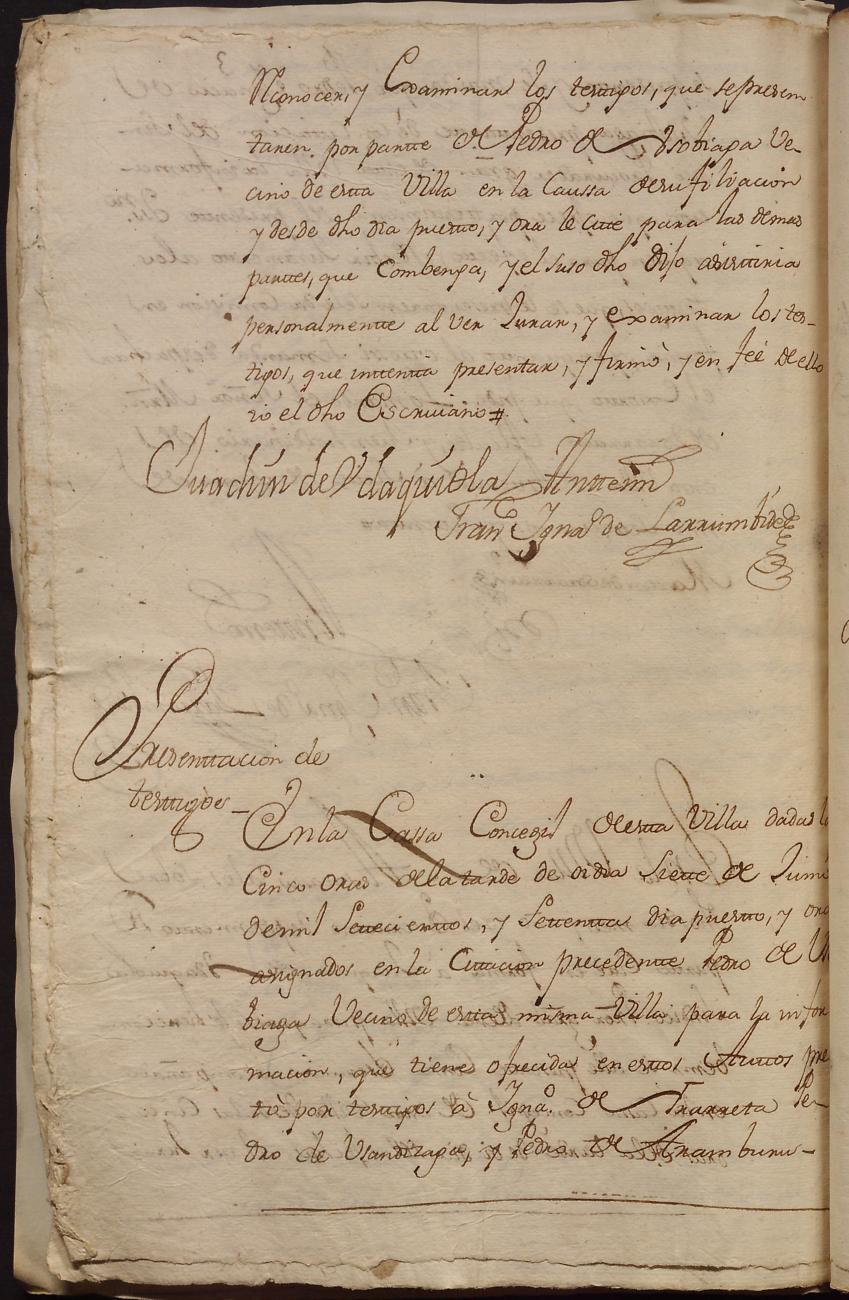 Rconocer, y Examinar los testigos, que se presen
taren por parte de Pedro de Usobiaga Ve-
cino de esta Villa en la Caussa de su filiacion
y desde dho dia puesto, y ora le cite para las demas
partes, que Combenga, y el suso dho dijo asistiria
personalmente al ver Jurar, y examinar los tes-
tigos, que intenta presentar, y firmò, y en feé de ello
io el dho Escriviano #
Juachin de Vdaquiola Antemi
Franco Ignao de Larrumbide
Presentacion de
testigos
En la Cassa Concegil de esta Villa dadas l
Cinco oras de la tarde de oi dia Siete de Juni
de mil Setecientos, y Settenta dia puesto, y ora
asignados en la Citacion precedente Pedro de U
biaga Vecino de esta misma Villa para la infor
macion, que tiene ofrecida en estos Autos pre
tò por testigos à Ignao. de Irarreta Pe-
dro de Usandizaga, y Pedro de Aramburu-